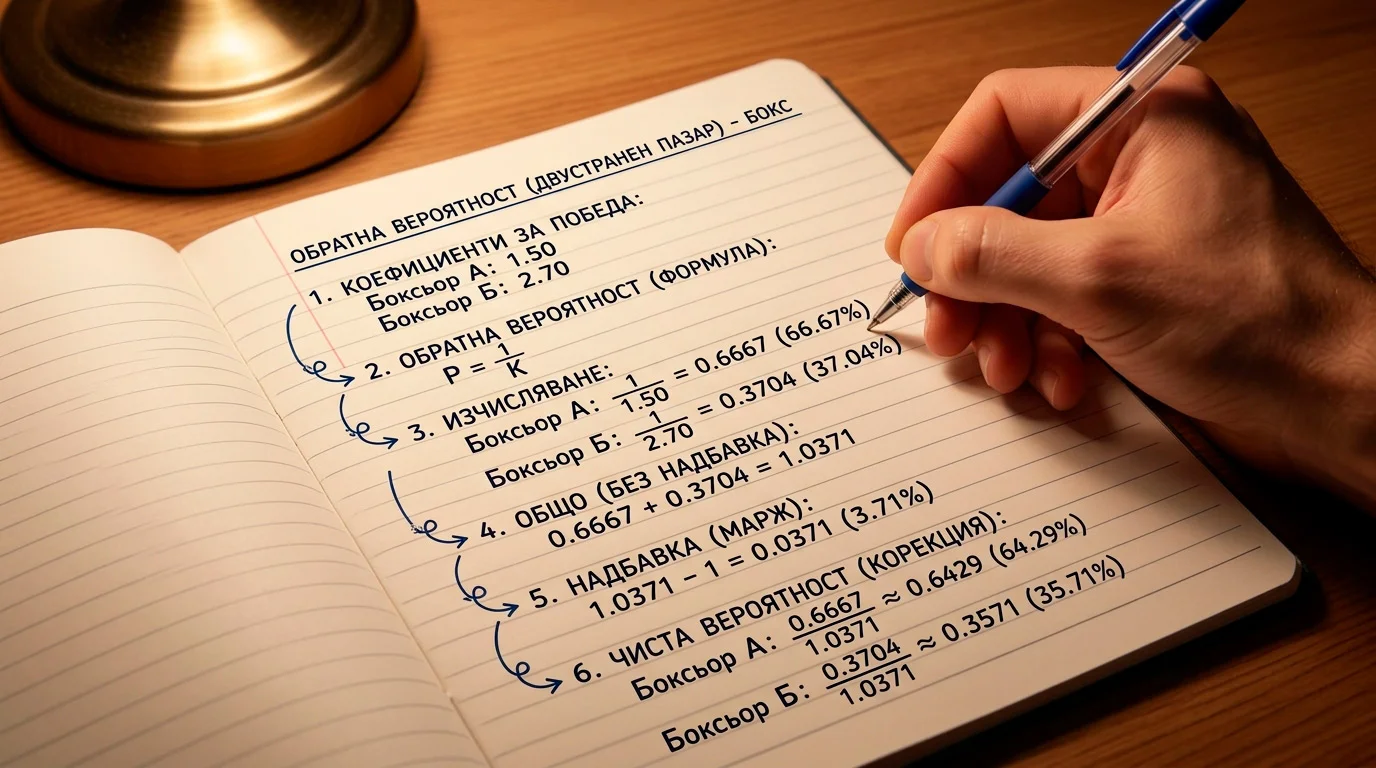 ОБРАТНА ВЕРОЯТНОСТ (ДВУСТРАНЕН ПАЗАР) – БОКС
1. КОЕФИЦИЕНТИ ЗА ПОБЕДА:
Боксьор А: 1.50
Боксьор Б: 2.70
2. ОБРАТНА ВЕРОЯТНОСТ (ФОРМУЛА):
P = 1/K
3. ИЗЧИСЛЯВАНЕ:
Боксьор А: 1/1.50 = 0.6667 (66.67%)
Боксьор Б: 1/2.70 = 0.3704 (37.04%)
4. ОБЩО (БЕЗ НАДБАВКА):
0.6667 + 0.3704 = 1.0371
5. НАДБАВКА (МАРЖ):
1.0371 − 1 = 0.0371 (3.71%)
6. ЧИСТА ВЕРОЯТНОСТ (КОРЕКЦИЯ):
Боксьор А: 0.6667/1.0371 ≈ 0.6429 (64.29%)
Боксьор Б: 0.3704/1.0371 ≈ 0.3571 (35.71%)